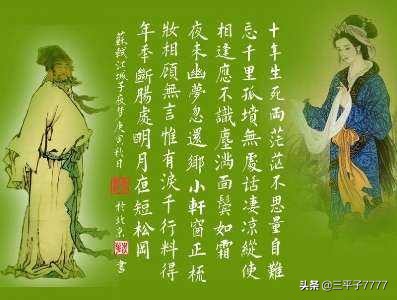 十年生死兩茫茫不思量自難
忘千里孤墳無處話淒涼縱使
相逢應不識塵滿面鬢如霜
夜來幽夢忽還鄉小軒窗正梳
妝相顧無言惟有淚千行料得
年秊斷腸處明月夜短松岡
蘇軾江城子庚寅秋日
於北京
書
头条 @三平子7777